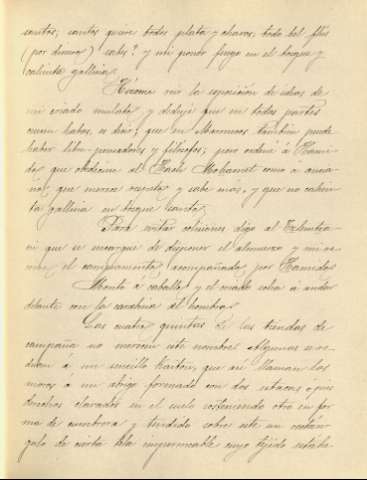 santos; santos quiere todos plata y ahora; todo del
(por dinero) sabes? y mi poner fuego en el bosque y
calienta gallina.
Hízome reir la exposición de ideas de
mi criado mulato, y deduje que en todas partes
cuecen habas, es decir; que en Marruecos también puede
haber libre-pensadores y filósofos; pero ordené á
que obedeciera al Hach Mohamet como á
no, que merece respeto y sabe mas, y que no calien-
ta gallina en bosque santo.
Para evitar colisiones digo al
que se encargue de disponer el almuerzo y
el campamento, acompañado por Hamido.
Monto á caballo y el criado echa á andar
delante con la carabina al hombro.
Las cuatro quintas de las tiendas de
campaña no merecen este nombre. Algunas se re-
ducen á un sencillo que así llaman los
moros á un abrigo formado con dos estacas ó pies
derechos clavados en el suelo sosteniendo otro en for-
ma de cumbrera y tendido sobre este un rectán-
gulo de cierta tela impermeable cuyo tejido